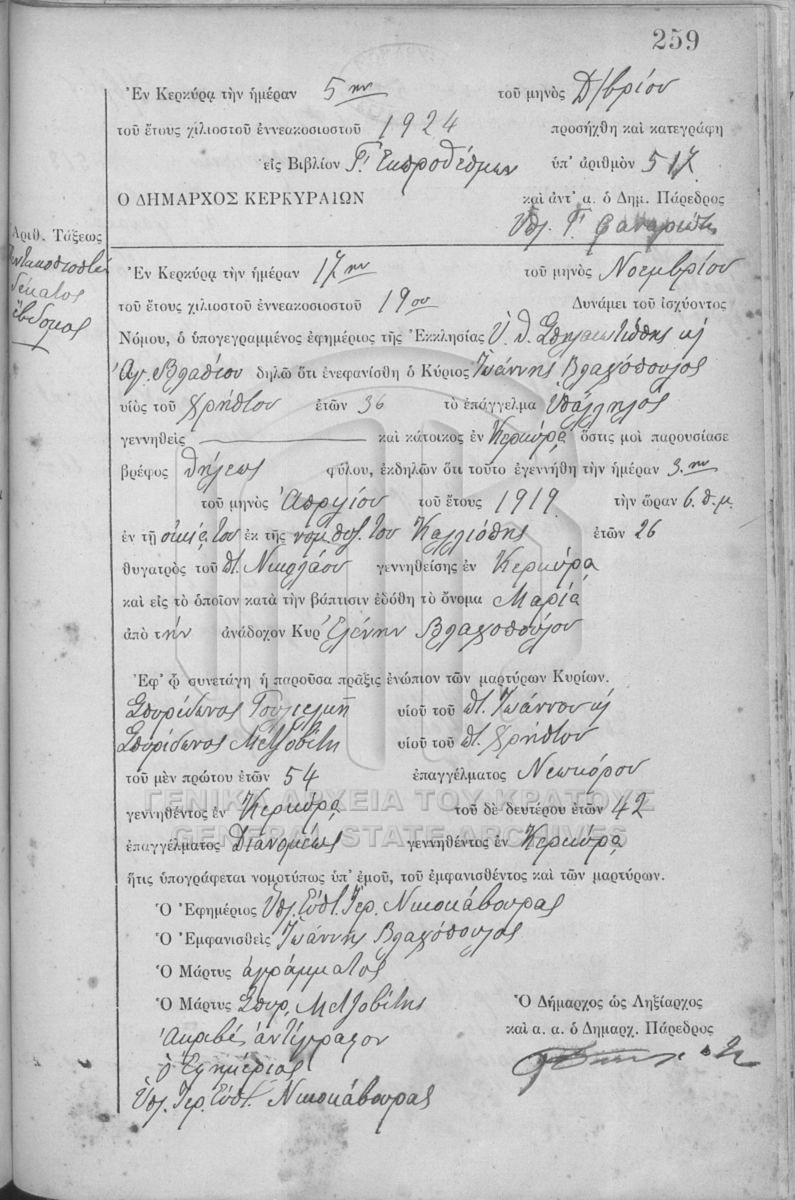 259
Ἐν Κερκύρᾳ τὴν ἡμέραν 5ην τοῦ μηνὸς Δ/βρίου
τοῦ ἔτους χιλιοστοῦ ἐννεακοσιοστοῦ 1924 προσήχθη καὶ κατεγράφη
εἰς Βιβλίον Γ! Ἐκπροθέσμων ὑπ' ἀριθμὸν 517
Ο ΔΗΜΑΡΧΟΣ ΚΕΡΚΥΡΑΙΩΝ καὶ ἀντ' α. ὁ Δημ. Πάρεδρος
Ὑπ. Γ.
Ἀριθ. Τάξεως
Πεντακοσιοστὸς
δέκατος
ἕβδομος
Ἐν Κερκύρᾳ τὴν ἡμέραν 17ην τοῦ μηνὸς Νοεμβρίου
τοῦ ἔτους χιλιοστοῦ ἐννεακοσιοστοῦ 19ου Δυνάμει τοῦ ἰσχύοντος
Νόμου, ὁ ὑπογεγραμμένος ἐφημέριος τῆς Ἐκκλησίας Ὑ. Θ. Σπηλαιωτίσσης κ
Ἁγ. Βλασίου δηλῶ ὅτι ἐνεφανίσθη ὁ Κύριος Ἰωάννης Βλαχόπουλος
υἱὸς τοῦ Χρήστου ἐτῶν 36 τὸ ἐπάγγελμα Ὑπάλληλος
γεννηθεὶς καὶ κάτοικος ἐν Κερκύρᾳ ὅστις μοὶ παρουσίασε
βρέφος θήλεως φύλου, ἐκδηλῶν ὅτι τοῦτο ἐγεννήθη τὴν ἡμέραν 3.ην
τοῦ μηνὸς Ἀπριλίου τοῦ ἔτους 1919 τὴν ὥραν 6. π.μ.
ἐν τῇ οἰκίᾳ του ἐκ τῆς νομ. συζ. του Καλλιόπης ἐτῶν 26
θυγατρὸς τοῦ π. Νικολάου γεννηθείσης ἐν Κερκύρᾳ
καὶ εἰς τὸ ὁποῖον κατὰ τὴν βάπτισιν ἐδόθη τὸ ὄνομα Μαρία
ἀπὸ τὴν ἀνάδοχον Κυρ Ἑλένην Βλαχοπούλου
Ἐφ' ᾧ συνετάγη ἡ παροῦσα πρᾶξις ἐνώπιον τῶν μαρτύρων Κυρίων.
Σπυρίδωνος Γουλιελμῆ υἱοῦ τοῦ π. Ἰωάννου κ
Σπυρίδωνος Μετζοβίτη υἱοῦ τοῦ π. Χρήστου
τοῦ μὲν πρώτου ἐτῶν 54 ἐπαγγέλματος Νεωκόρου
γεννηθέντος ἐν Κερκύρᾳ τοῦ δὲ δευτέρου ἐτῶν 42
ἐπαγγέλματος Διανομέως γεννηθέντος ἐν Κερκύρᾳ
ἥτις ὑπογράφεται νομοτύπως ὑπ' ἐμοῦ, τοῦ ἐμφανισθέντος καὶ τῶν μαρτύρων.
Ὁ Ἐφημέριος Ὑπ. Εὐστ. Ἱερ. Νικοκάβουρας
Ὁ Ἐμφανισθεὶς Ἰωάννης Βλαχόπουλος
Ὁ Μάρτυς ἀγράμματος
Ὁ Μάρτυς Σπυρ. Μετζοβίτης
Ὁ Δήμαρχος ὡς Ληξίαρχος
καὶ α. α. ὁ Δημαρχ. Πάρεδρος
Ἀκριβὲς ἀντίγραφον
ὁ Ἐφημέριος
Ὑπ. Ἱερ. Εὐστ. Νικοκάβουρας
ΓΕΝΙΚΑ ΑΡΧΕΙΑ ΤΟΥ ΚΡΑΤΟΥΣ
GENERAL STATE ARCHIVES